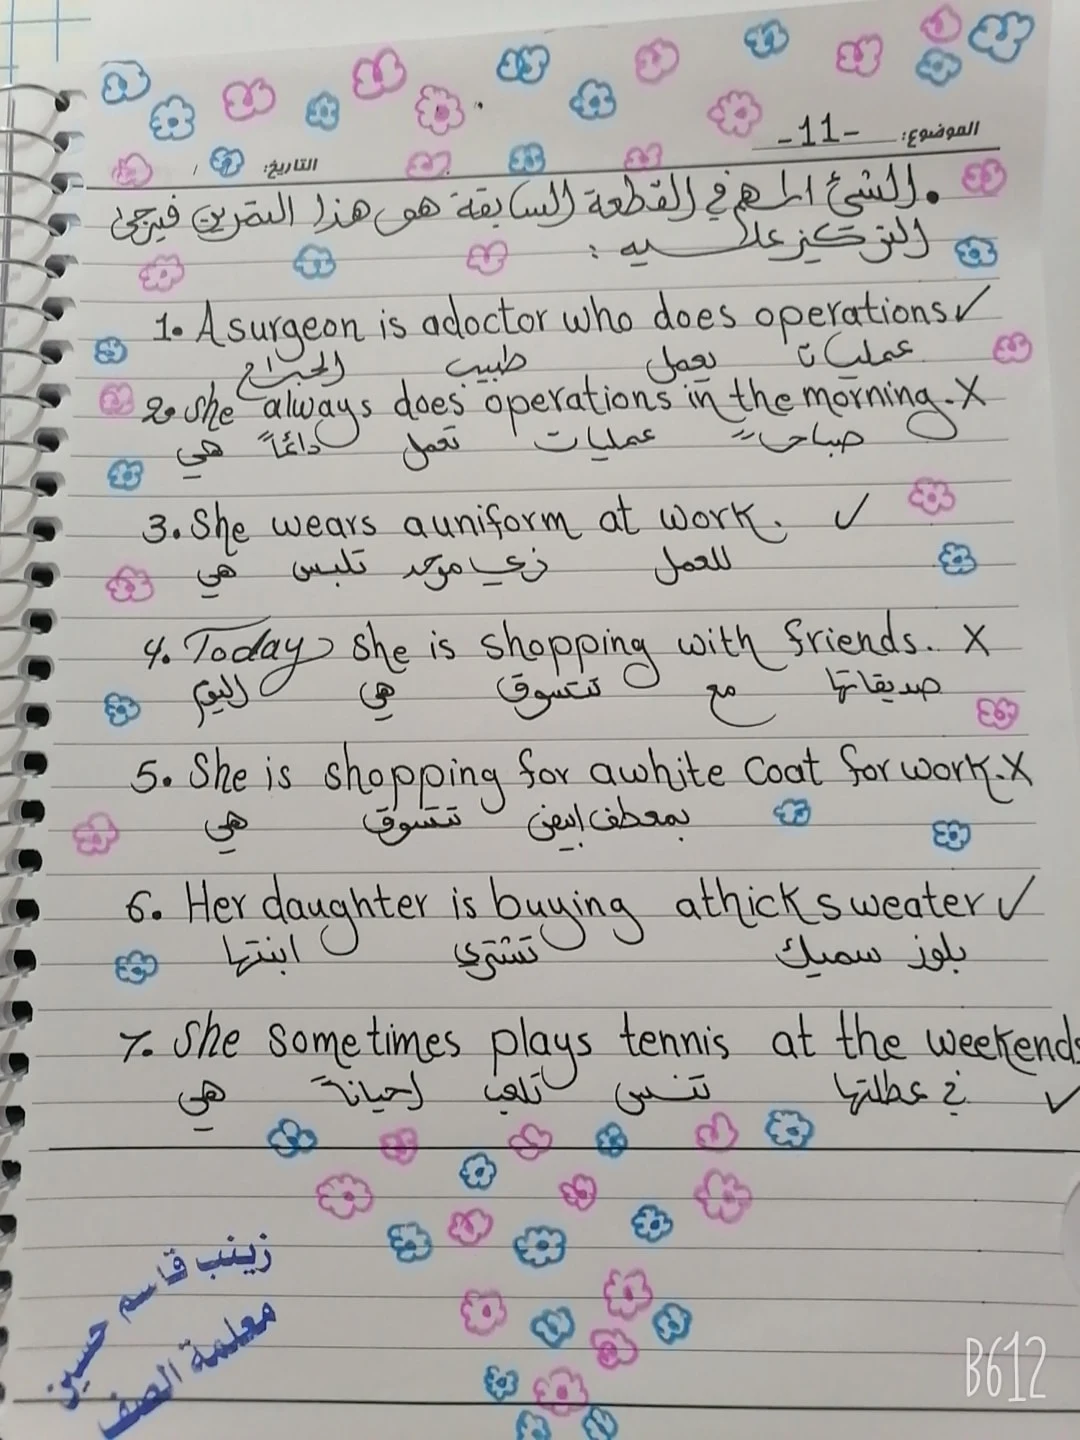 الموضوع: -11-
التاريخ: / /
• الشئ المهم في القطعة السابقة هو هذا التمرين فيرجى
التركيز علـــيه :
1. A surgeon is a doctor who does operations ✓
الجراح طبيب يعمل عمليات
2. She always does operations in the morning. X
هي دائماً تعمل عمليات صباحاً
3. She wears a uniform at work. ✓
هي تلبس زي موحد للعمل
4. Today she is shopping with friends. X
اليوم هي تتسوق مع صديقاتها
5. She is shopping for a white coat for work. X
هي تتسوق بمعطف ابيض
6. Her daughter is buying a thick sweater ✓
ابنتها تشتري بلوز سميك
7. She sometimes plays tennis at the weekends
هي احياناً تلعب تنس في عطلتها ✓
زينب قاسم حسين
معلمة الصف
B612